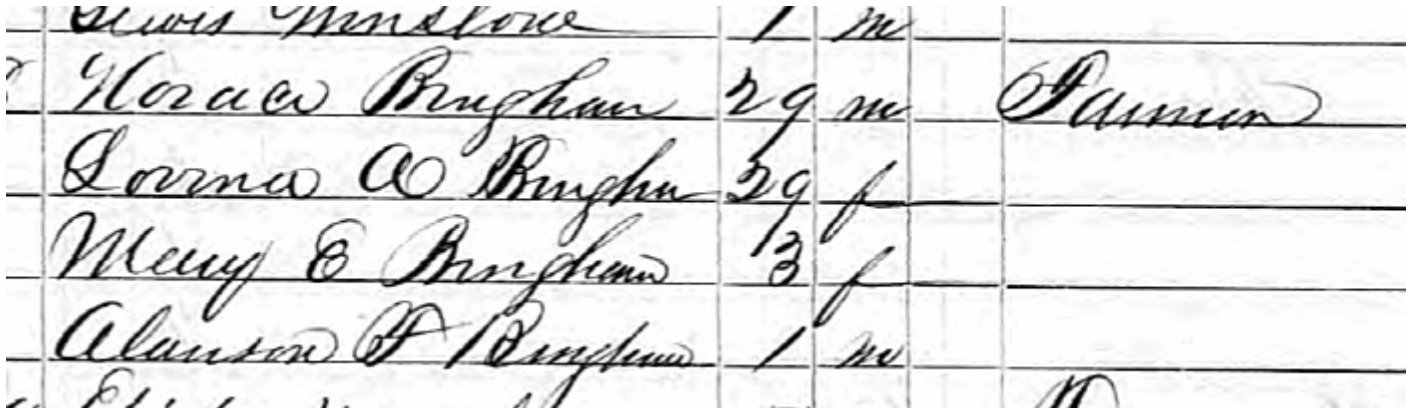 Lewis Winslow 1 m
Horace Bingham 29 m Farmer
Lovina A Bingham 29 f
Mary E Bingham 3 f
Alanson F Bingham 1 m